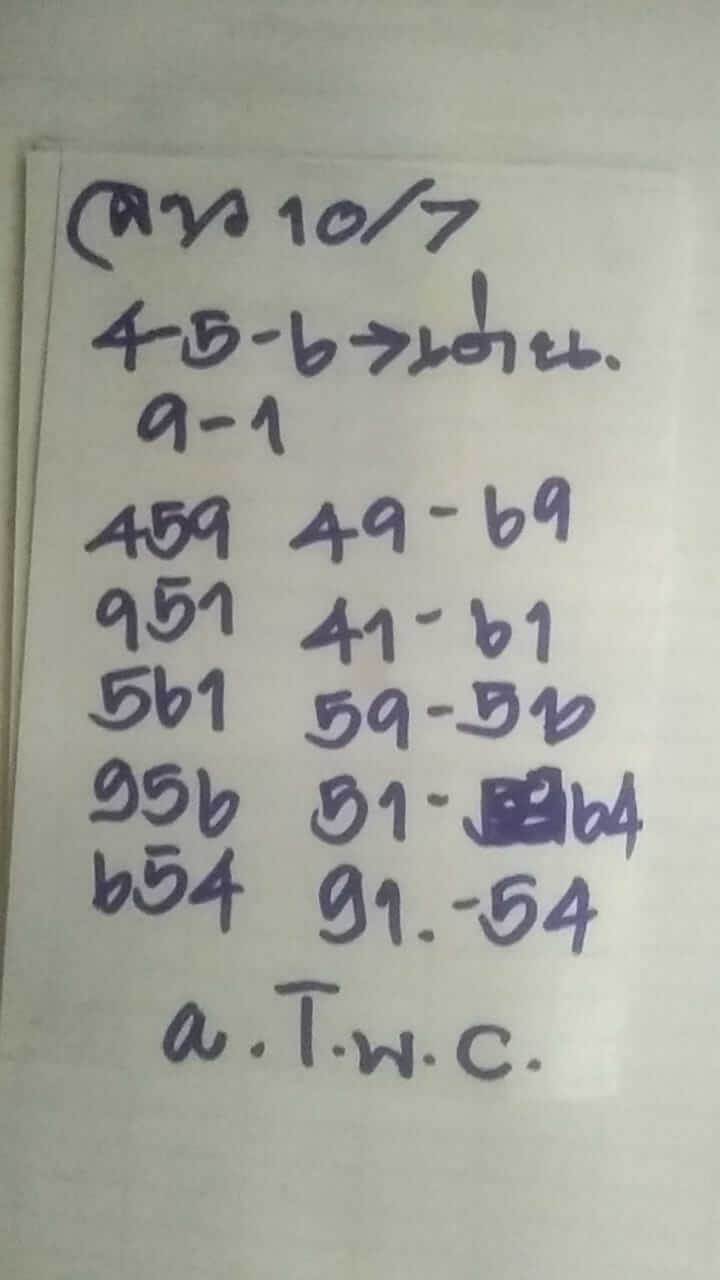 10/7
4-5-6→เด่น.
9-1
459 49-69
951 41-61
561 59-56
956 51-64
654 91.-54
a.T.พ.c.